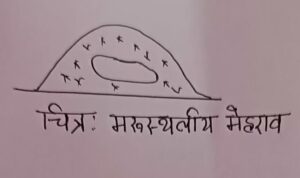 चित्र: मरूस्थलीय मेहराव